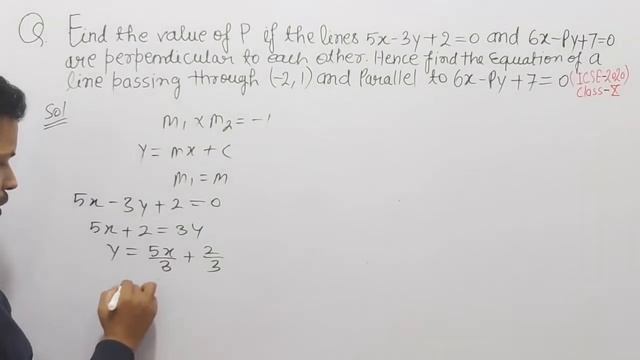 Q. Find the value of P if the lines 5x-3y+2=0 and 6x-Py+7=0
are perpendicular to each other. Hence find the Equation of a
line passing through (-2,1) and Parallel to 6x-Py+7=0 (ICSE-2020)
Class-X
Sol
m₁ × m₂ = -1
Y = mx + C
m₁ = m
5x - 3y + 2 = 0
5x + 2 = 3y
Y = 5x/3 + 2/3